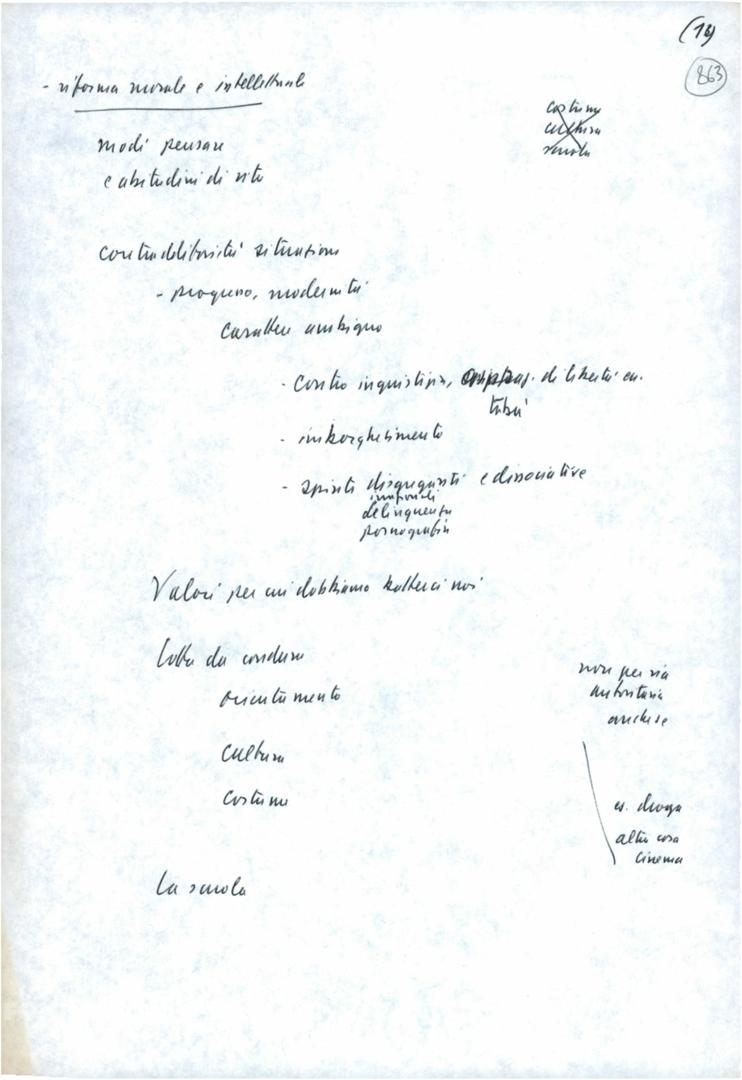 (18)
863
- riforma morale e intellettuale
costume
cultura
scuola
modi pensare
e abitudini di vita
contraddittorietà situazione
- progresso, modernità
carattere ambiguo
- contro di libertà es.
tabù
- imborghesimento
- spinte disgreganti e dissociative
irrazionali
delinquenza
pornografia
Valori per cui dobbiamo batterci noi
Lotta da condurre
orientamento
non per via
autoritaria
anche se
cultura
costume
es. droga
altra cosa
cinema
La scuola